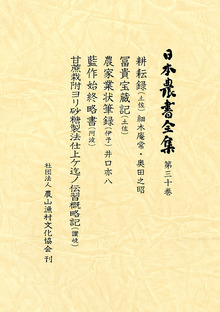 日本農書全集 第三十巻
耕耘録(土佐) 細木庵常・奥田之昭
冨貴宝蔵記(土佐)
農家業状筆録(伊予) 井口亦八
藍作始終略書(阿波)
甘蔗栽附ヨリ砂糖製法仕上ケ迄ノ伝習概略記(讃岐)
社団法人 農山漁村文化協会 刊